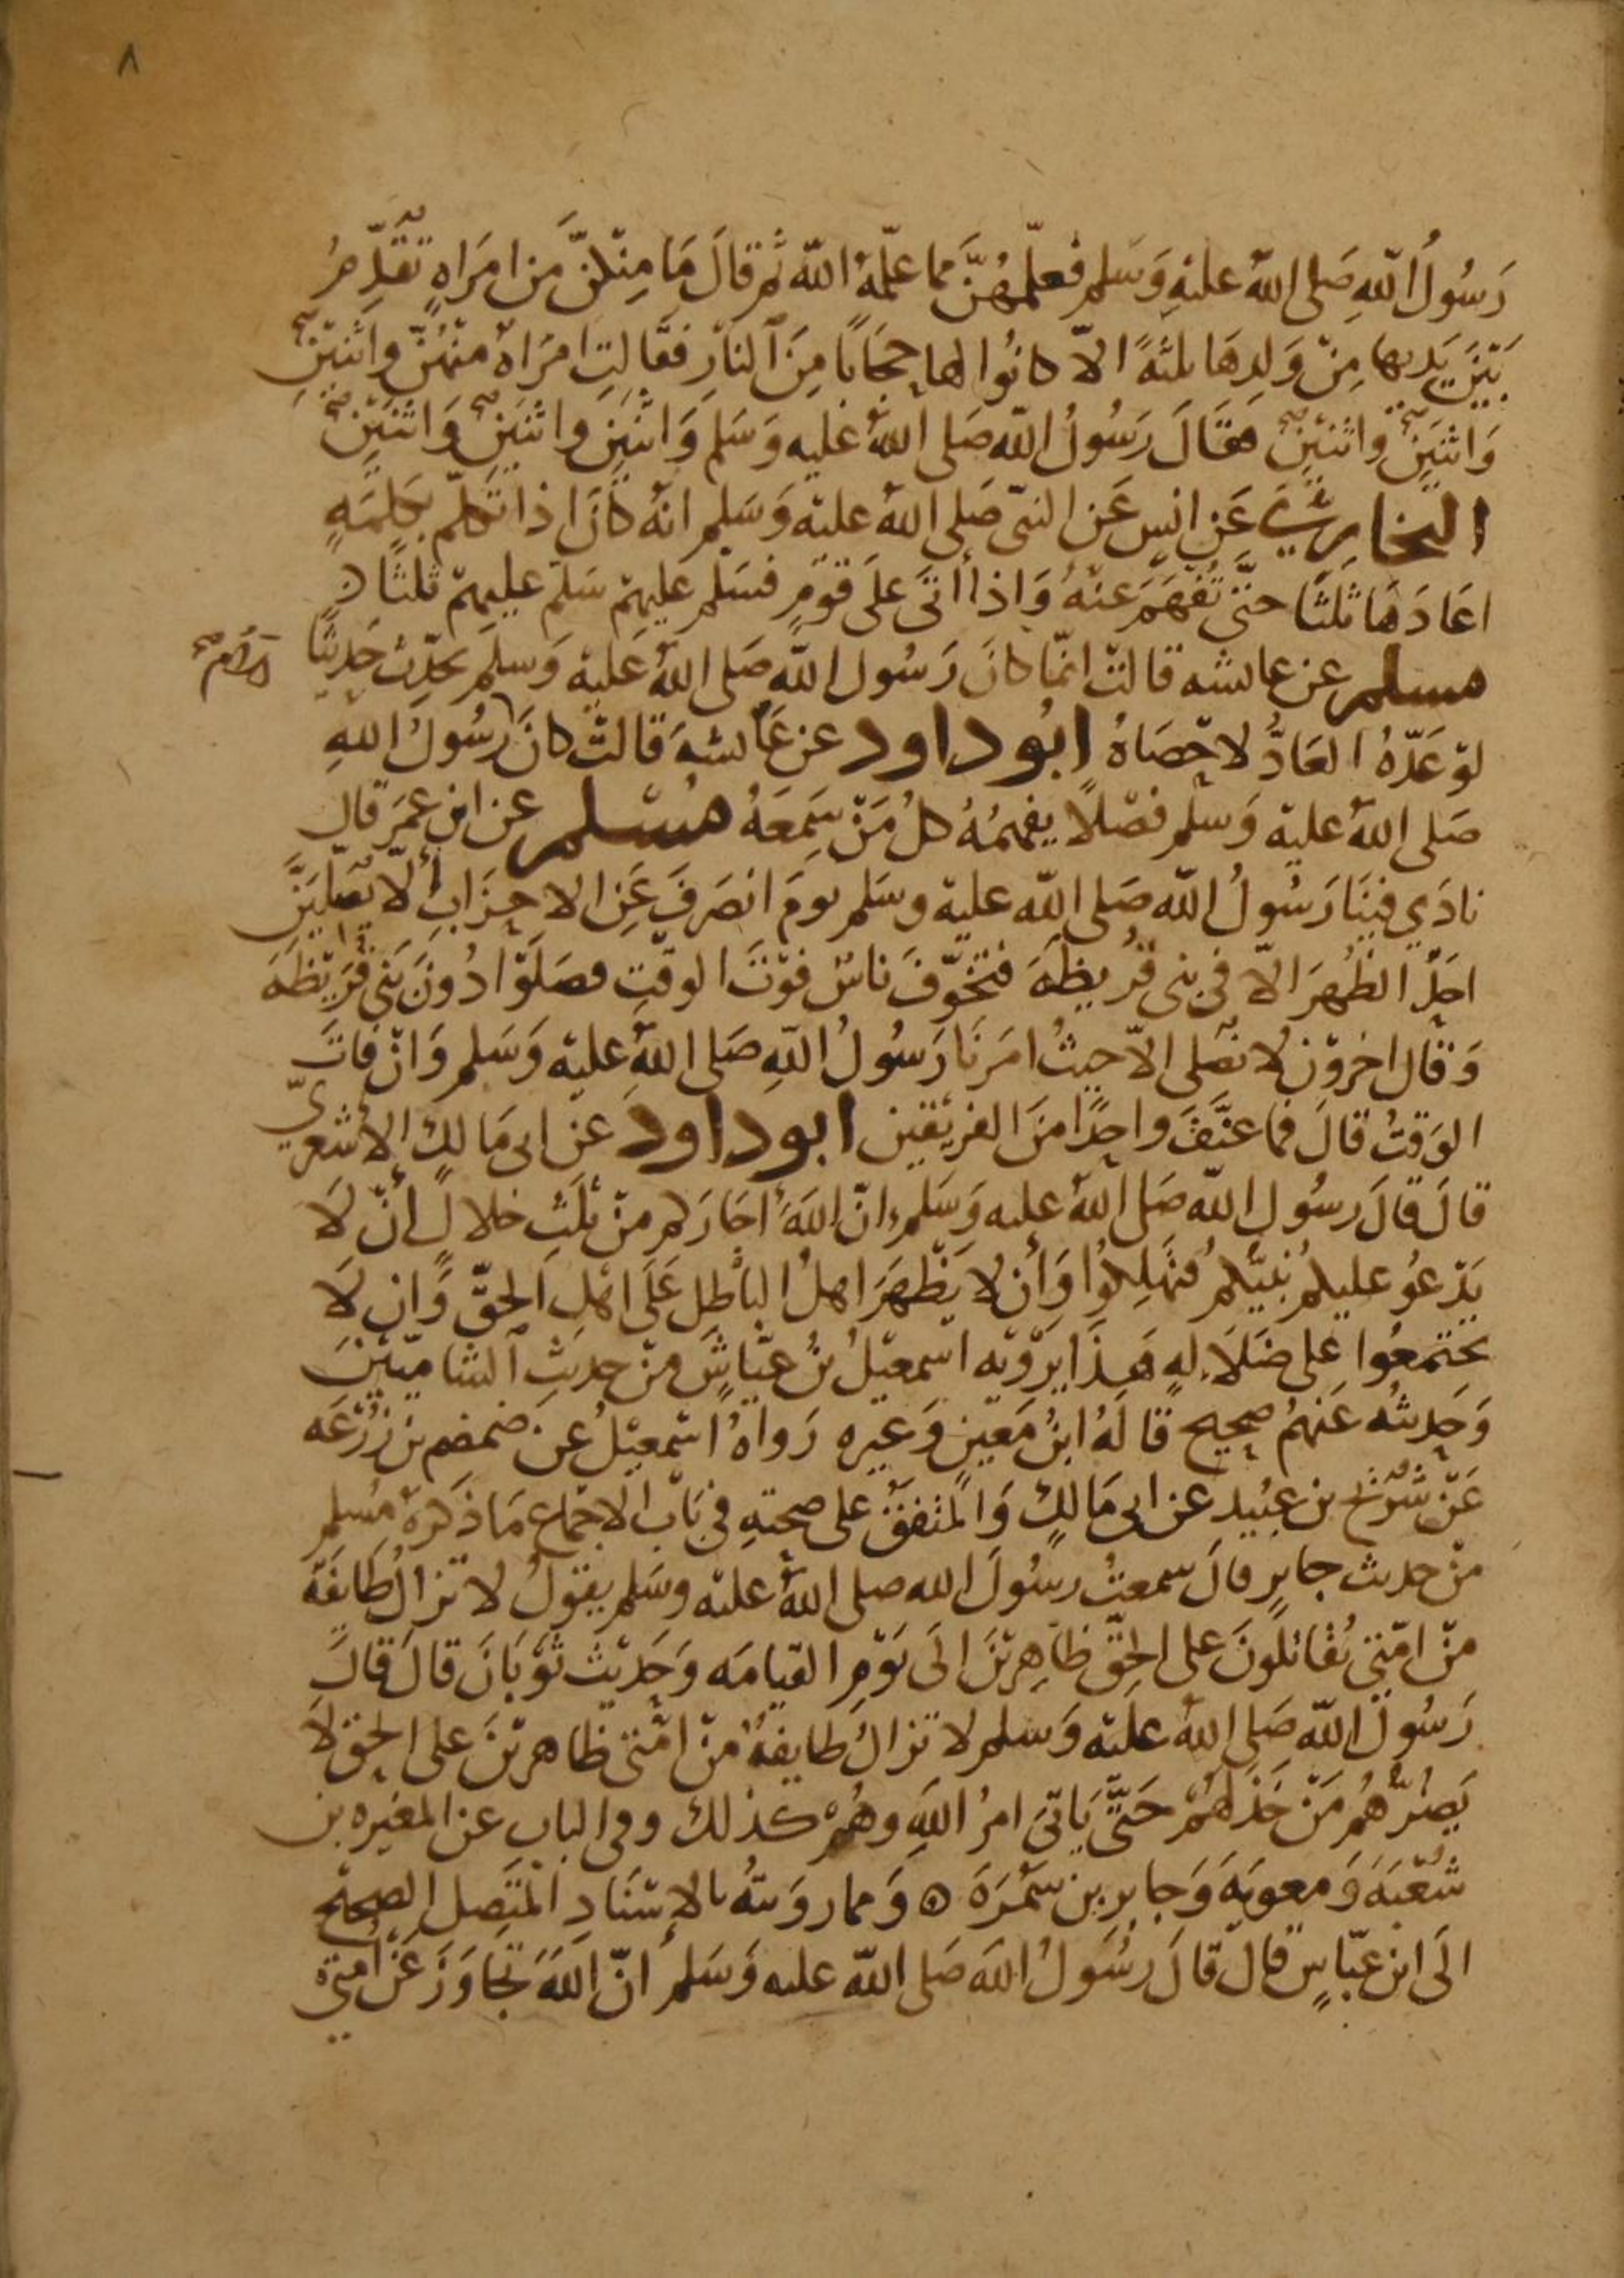 ٨
رَسُولُ اللهِ صَلى اللهُ عليْهِ وَسَلم فعلّمهُنَّ مما علّمهُ الله ثم قالَ مَا مِنْكنَّ مِن امرَاهٍ تقَدِّمُ
بَيْنَ يَديها مِنْ وَلدِهَا ثلثهً الاّ كانُوا لها حِجَابًا مِنَ النَارِ فقَالتِ امرَاهٌ منْهُنّ واثنيْنِ
وَاثنَينِ واثنَيْنِ فقَالَ رَسُولُ اللهِ صَلى اللهُ عليه وَسَلم وَاثنَينِ واثنَينِ وَاثنَيْنِ
البخاريّ عَن انسٍ عَن النبّى صَلى اللهُ عليهْ وَسَلم انهُ كانَ اذا تَكلّم بكلِمَهٍ
اعَادَهَا ثلَثًا حتَّى تُفهَمَ عنْهُ وَاذا أتَى عَلَى قوْمٍ فسَلم عليهِمْ سَلمَ عليهِمْ ثلثًا
مسلم عن عايشه قالتْ انمّا كانَ رَسُول اللهِ صَلى اللهُ عَليهْ وَسلمَ يحدّث حَدِيثًا
لوْ عَدّهُ العَادُّ لاحْصَاهُ ابُوداود عن عَايشهَ قالتْ كانَ رسُولُ اللهِ
صَلى اللهُ عليهْ وَسلم فصْلًا يفهمُهُ كلُ مَنْ سَمِعَهُ مسْلم عن ابنِ عمَر قالِ
نادَي فينَا رَسُولُ اللهِ صَلى الله عليهْ وسَلم يومَ انصَرفَ عَنِ الاحزَابِ ألاّ يصَليَنَّ
احَدٌ الظُهرَ الاّ فى بنى قُريظهَ فتخوّفَ ناسٌ فوْتَ الوقتِ فصَلوْا دُونَ بَنى قرَيْظهَ
وَقالَ اخروْنَ لا نصَلى الاّ حيثُ امرَنَا رَسُولُ اللهِ صَلى اللهُ عليْهِ وَسَلم وَانْ فاتَ
الوَقتُ قالَ فما عنَّفَ واحِدًا مِنَ الفريْقينِ ابوداود عنْ ابى مَالكِ الأشعريّ
قالَ قالَ رسُول الله صَلى اللهُ عليه وَسَلم انّ اللهَ أجَارَكم منْ ثلَثِ خلالٍ أنْ لَا
يَدْعُو عليكم نبيّكمُ فتهْلِكوُا وَأن لا يَظْهرَ اهلُ الباطِل عَلَى اهْلِ الحقِّ وَان لَا
يجتمعُوا عَلى ضَلَالهٍ هَذَا يروْيه اسمعيْلُ بنُ عيّاشٍ منْ حديثِ الشاميّيْنَ
وَحَديثُه عَنهُم صحيح قالَهُ ابنُ مَعيْنٍ وَغيره رَواهُ اسْمعيْلُ عن ضمضم بن زرْعَه
عَنْ شرَيْح بن عبُيد عن ابى مَالكٍ وَالمتفَقُ على صحتهِ فى بَاب الاجماع مَا ذكرَهُ مُسلم
منْ حديث جابرٍ قالَ سمعتُ رسُولَ الله صلى اللهُ عليْه وسَلم يقوْلُ لا تزالُ طَايفَهٌ
منْ امّتى يُقاتلُونَ على الحقِّ ظاهِريْنَ الَى يَوْمِ القيامَه وَحَديْث ثوْبَانَ قالَ قالَ
رَسُولُ اللهِ صَلى اللهُ عليْهِ وَسلم لا تزالُ طايفهٌ منْ امّتى ظاهريْنَ على الحقّ لَا
يَضُرُّهُم مَنْ خَذلَهُمْ حَتّى يَاتىَ امرُ اللهِ وهُمْ كذلك وفى البابِ عن المغيره بن
شُعْبَهَ وَمعويَهَ وَجابرِ بن سَمُرَهَ ه وَمما روَيتهُ بالإسْنَادِ المتّصِل الصحيْح
الَى ابن عبّاسٍ قالَ قالَ رسُولُ اللهِ صَلى الله عليه وَسَلم انّ اللهَ تجَاوَزَ عَنْ امّتى